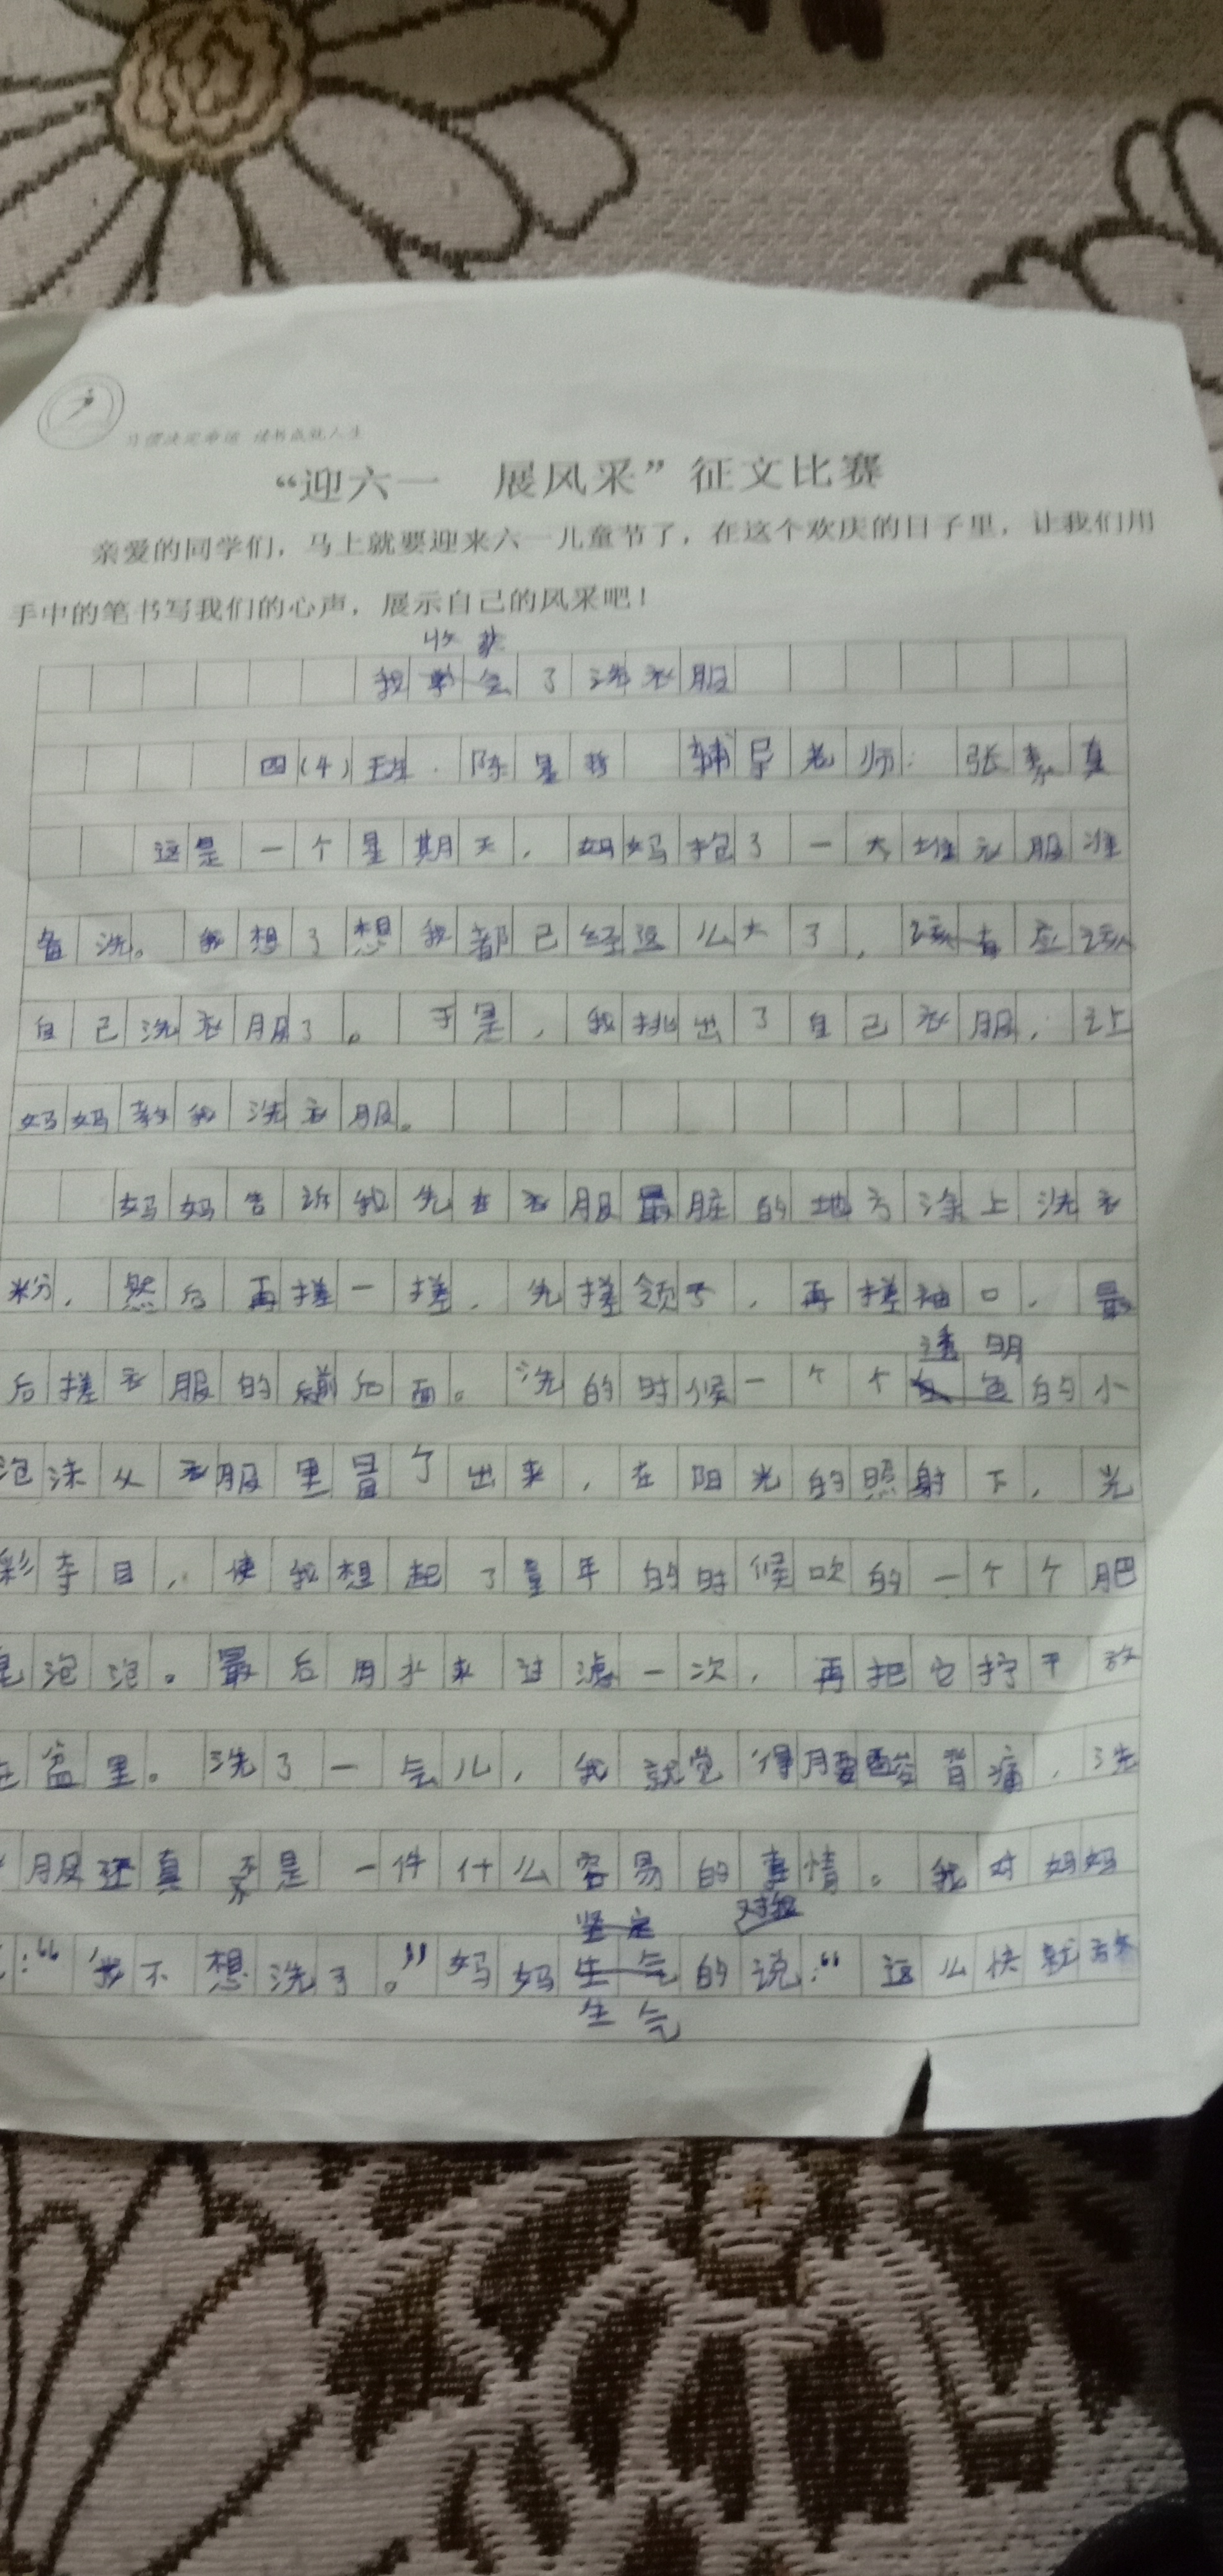 习惯决定命运 读书成就人生
“迎六一 展风采”征文比赛
亲爱的同学们，马上就要迎来六一儿童节了，在这个欢庆的日子里，让我们用
手中的笔书写我们的心声，展示自己的风采吧！
收获
我学会了洗衣服
四(4)班 陈 辅导老师：张素真
这是一个星期天，妈妈抱了一大堆衣服准
备洗。我想了想我都已经这么大了，该有应该
自己洗衣服了。于是，我挑出了自己衣服，让
妈妈教我洗衣服。
妈妈告诉我先在衣服最脏的地方涂上洗衣
粉，然后再搓一搓，先搓领子，再搓袖口，最
透明
后搓衣服的前后面。洗的时候一个个白色的小
泡沫从衣服里冒了出来，在阳光的照射下，光
彩夺目，使我想起了童年的时候吹的一个个肥
皂泡泡。最后用水来过滤一次，再把它拧干放
在盆里。洗了一气儿，我就觉得腰酸背痛，洗
服还真不是一件什么容易的事情。我对妈妈
坚定 对我
：“我不想洗了。”妈妈生气的说：“这么快就
生气